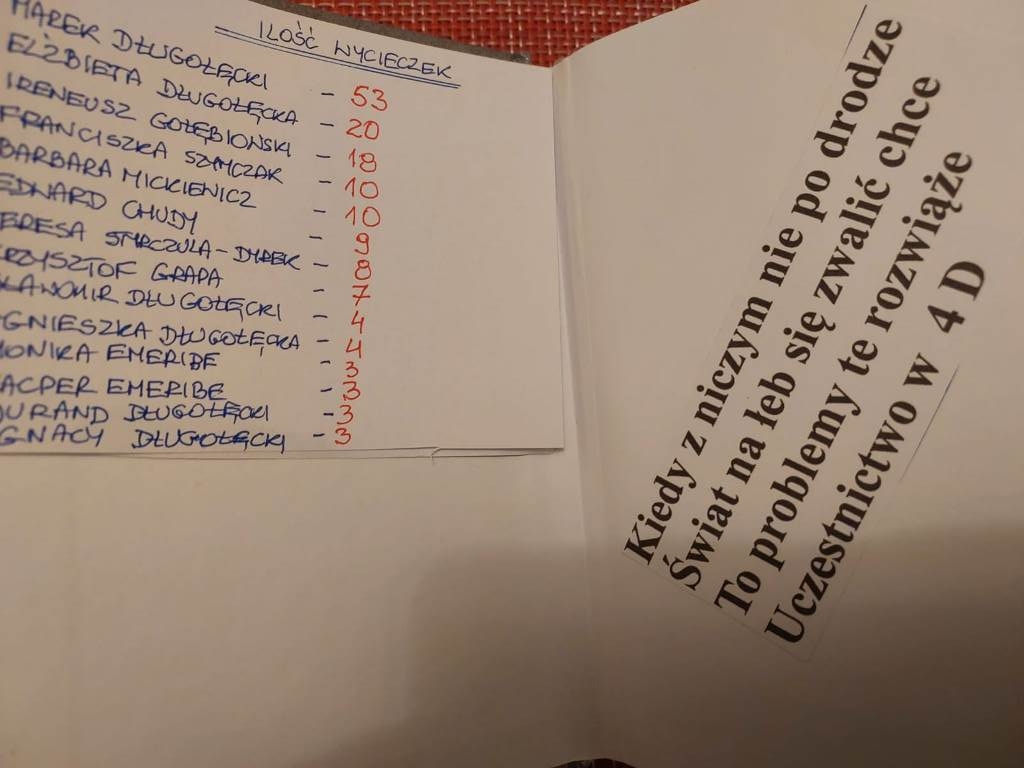 ILOŚĆ WYCIECZEK
MAREK DŁUGOŁĘCKI - 53
ELŻBIETA DŁUGOŁĘCKA - 20
IRENEUSZ GOŁĘBIOWSKI - 18
FRANCISZKA SZYMCZAK - 10
BARBARA MICKIEWICZ - 10
EDWARD CHUDY - 9
ERESA - 8
RZYSZTOF GRAPA - 7
ŁAWOMIR DŁUGOŁĘCKI - 4
GNIESZKA DŁUGOŁĘCKA - 4
MONIKA EMERIBE - 3
ACPER EMERIBE - 3
JURAND DŁUGOŁĘCKI - 3
GNACY DŁUGOŁĘCKI - 3
Kiedy z niczym nie po drodze
Świat na łeb się zwalić chce
To problemy te rozwiąże
Uczestnictwo w 4 D